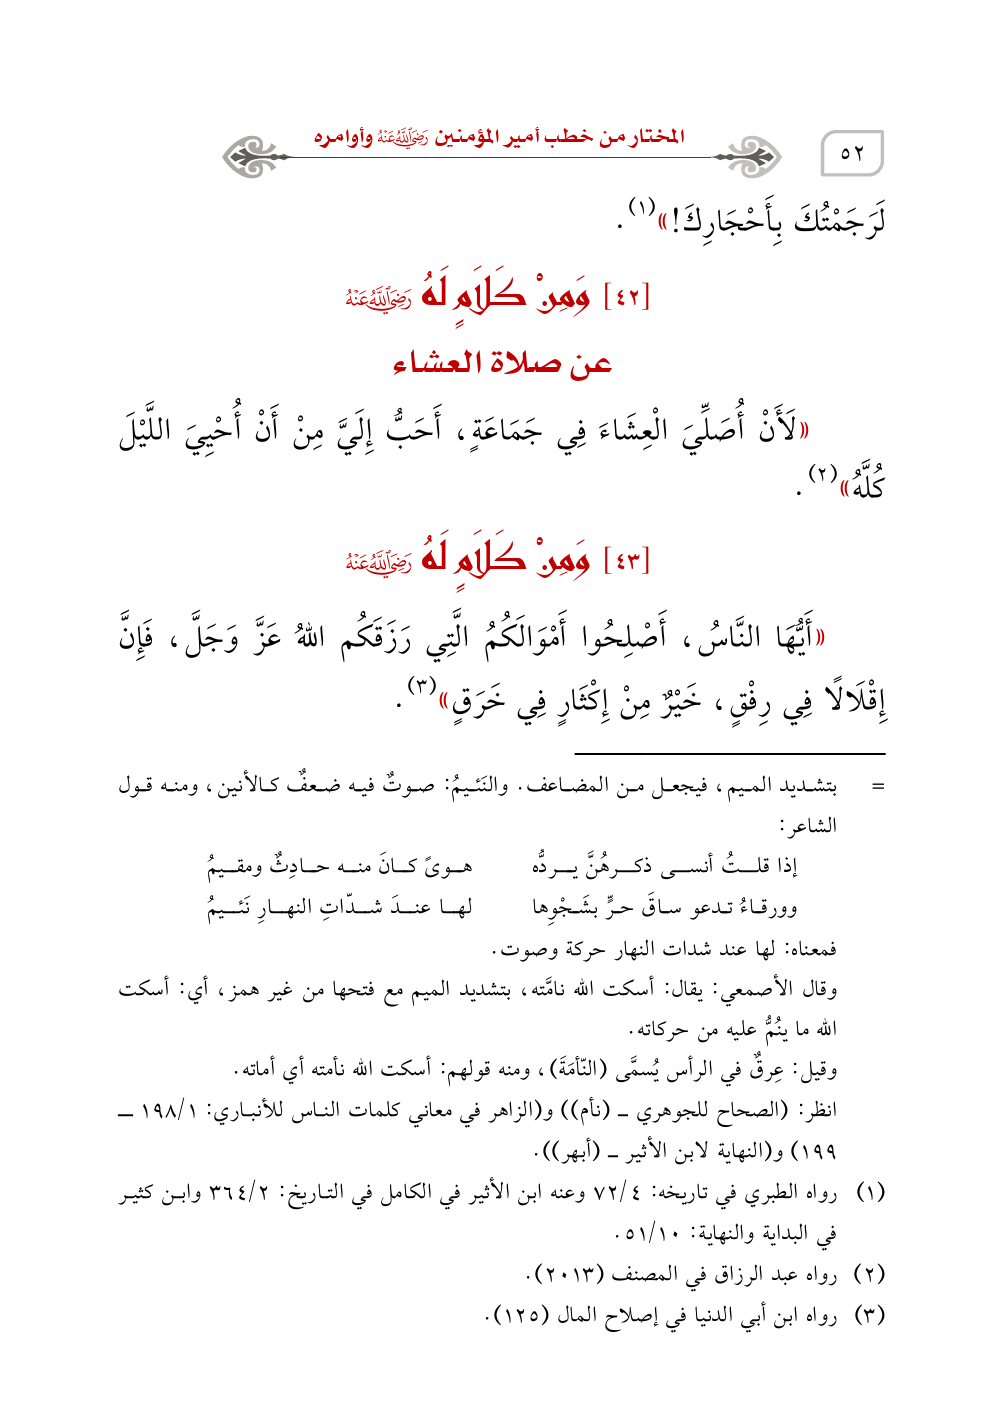 ٥٢
المختار من خطب أمير المؤمنين رَضِيَاللَّهُعَنْهُ وأوامره
لَرَجَمْتُكَ بِأَحْجَارِكَ!»(١).
[٤٢] وَمِنْ كَلَامٍ لَهُ رَضِيَاللَّهُعَنْهُ
عن صلاة العشاء
«لَأَنْ أُصَلِّيَ الْعِشَاءَ فِي جَمَاعَةٍ، أَحَبُّ إِلَيَّ مِنْ أَنْ أُحْيِيَ اللَّيْلَ
كُلَّهُ»(٢).
[٤٣] وَمِنْ كَلَامٍ لَهُ رَضِيَاللَّهُعَنْهُ
«أَيُّهَا النَّاسُ، أَصْلِحُوا أَمْوَالَكُمُ الَّتِي رَزَقَكُم اللهُ عَزَّ وَجَلَّ، فَإِنَّ
إِقْلَالًا فِي رِفْقٍ، خَيْرٌ مِنْ إِكْثَارٍ فِي خَرَقٍ»(٣).
= بتشديد الميم، فيجعل من المضاعف. والنَئيمُ: صوتٌ فيه ضعفٌ كالأنين، ومنه قول
الشاعر:
إذا قلتُ أنسى ذكرهُنَّ يردُّه هوىً كانَ منه حادِثٌ ومقيمُ
وورقاءُ تدعو ساقَ حرٍّ بشَجْوِها لها عندَ شدّاتِ النهارِ نَئيمُ
فمعناه: لها عند شدات النهار حركة وصوت.
وقال الأصمعي: يقال: أسكت الله نامَّته، بتشديد الميم مع فتحها من غير همز، أي: أسكت
الله ما ينُمُّ عليه من حركاته.
وقيل: عِرقٌ في الرأس يُسمَّى (النّأمَةَ)، ومنه قولهم: أسكت الله نأمته أي أماته.
انظر: (الصحاح للجوهري ـ (نأم)) و(الزاهر في معاني كلمات الناس للأنباري: ١/١٩٨ ـ
١٩٩) و(النهاية لابن الأثير ـ (أبهر)).
(١) رواه الطبري في تاريخه: ٧٢/٤ وعنه ابن الأثير في الكامل في التاريخ: ٣٦٤/٢ وابن كثير
في البداية والنهاية: ٥١/١٠.
(٢) رواه عبد الرزاق في المصنف (٢٠١٣).
(٣) رواه ابن أبي الدنيا في إصلاح المال (١٢٥).